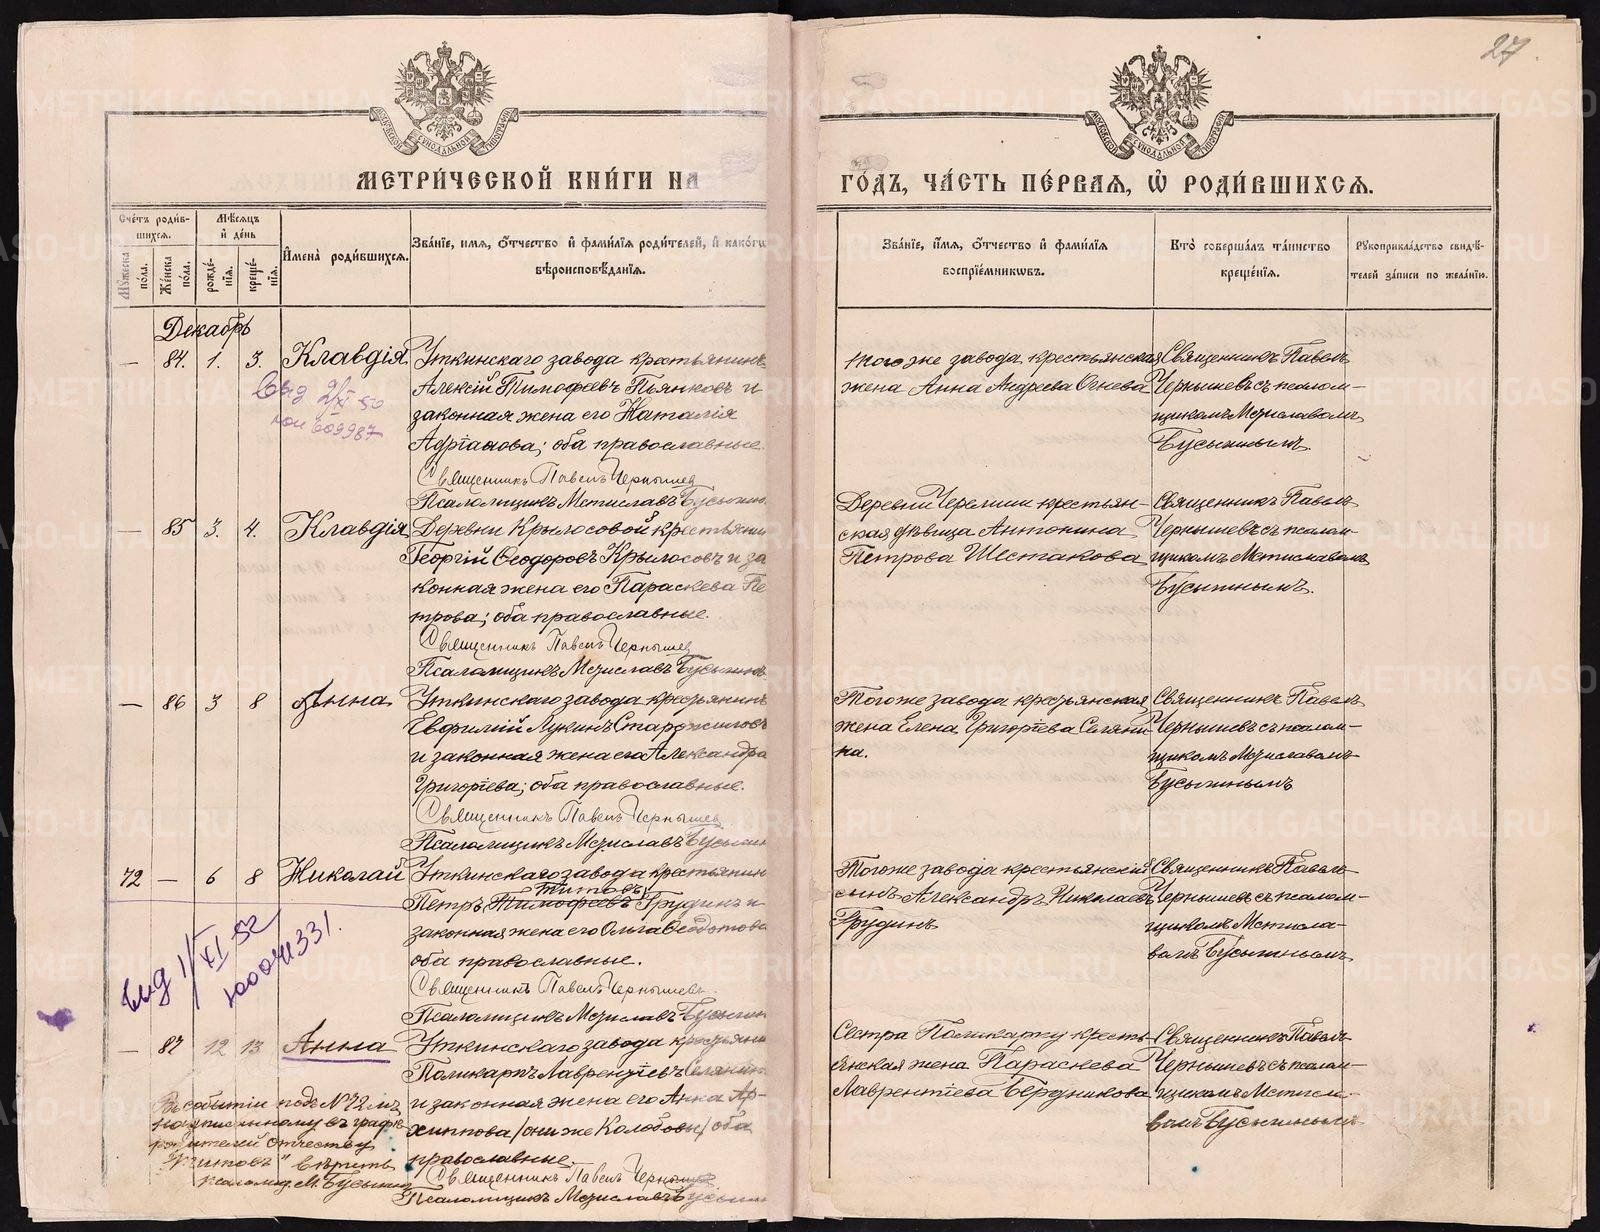 27
МЕТРИ́ЧЕСКОЙ КНИ́ГИ НА
ГО́ДЪ, ЧА́СТЬ ПЕ́РВАЯ, Ѡ РОДИ́ВШИХСЯ.
Сче́тъ роди́в-
шихся.
Мꙋ́жеска по́ла.
Же́нска по́ла.
Мѣ́сяцъ
и де́нь
рожде́нїя.
креще́нїя.
Имена̀ роди́вшихся.
Зва́нїе, имя, о́тчество и фами́лїя роди́телей, и како́гѡ
вѣроисповѣ́данїя.
Зва́нїе, и́мя, о́тчество и фами́лїя
воспрїе́мникѡвъ.
Кто̀ соверша́лъ та́инство
креще́нїя.
Рꙋкоприкла́дство свидѣ́-
телей за́писи по жела́нїю.
Декабрь
— 84. 1. 3. Клавдія.
Уткинскаго завода крестьянинъ
Алексій Тимофеевъ Пьянковъ и
законная жена его Наталія
Адріанова; оба православные.
Священникъ Павелъ Чернышев
Псаломщикъ Мстиславъ Бусыгинъ
тогоже завода крестьянская
жена Анна Андреева Огнева
Священникъ Павелъ
Чернышевъ съ псалом-
щикомъ Мстиславомъ
Бусыгинымъ.
609987
— 85 3. 4. Клавдія
Деревни Крылосовой крестьянин
Георгій Ѳеодоровъ Крылосовъ и за
конная жена его Параскева Пе
трова; оба православные.
Священникъ Павелъ Чернышев
Псаломщикъ Мстиславъ Бусыгинъ
Деревни Черемши крестьян-
ская дѣвица Антонина
Петрова Шестакова
Священникъ Павелъ
Чернышевъ съ псалом-
щикомъ Мстиславомъ
Бусыгинымъ.
— 86 3 8 Анна
Уткинскаго завода крестьянинъ
Евфимій Лукинъ
и законная жена его Александра
Григоріева; оба православные.
Священникъ Павелъ Чернышев
Псаломщикъ Мстиславъ Бусыгин
Тогоже завода крестьянская
жена Елена Григоріева Селяни
на.
Священникъ Павелъ
Чернышевъ съ псалом-
щикомъ Мстиславомъ
Бусыгинымъ
72 — 6 8 Николай
Уткинскаго завода крестьянин
Титовъ
Петръ Тимофеевъ Грудинъ и
законная жена его Ольга Ѳеодотова
оба православные.
Священникъ Павелъ Чернышевъ.
Псаломщикъ Мстиславъ Бусыгин
Тогоже завода крестьянскій
сынъ Александръ Николаевъ
Грудинъ
Священникъ Павелъ
Чернышевъ съ псалом-
щикомъ Мстисла-
вомъ Бусыгинымъ
XI 52
— 87 12 13 Анна
Уткинскаго завода крестьянин
Поликарпъ Лаврентіевъ Селянин
и законная жена его Анна Ар-
хиппова /они же Колобовы/ оба
православные.
Священникъ Павелъ Черныш
Псаломщикъ Мстиславъ Бусыгин
Сестра Поликарпу кресть-
янская жена Параскева
Лаврентіева Бердникова
Священникъ Павелъ
Чернышевъ съ псалом-
щикомъ Мстисла-
вомъ Бусыгинымъ
Въ событіи подъ № 72 мъ
написанному въ графѣ
родителей отчеству
„Титовъ" вѣрить
псаломщ. М. Бусыгин